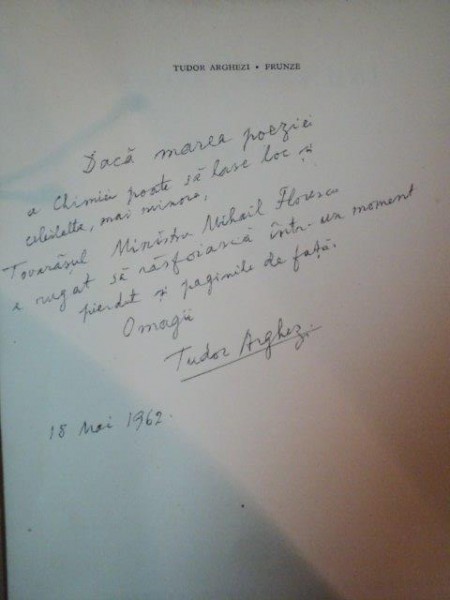 TUDOR ARGHEZI • FRUNZE
Dacă marea poezie
a Chimiei poate să lase loc și
celeilalte, mai minore,
Tovarășul Ministru Mihail Florescu
e rugat să răsfoiască într-un moment
pierdut și paginile de față.
Omagii
Tudor Arghezi
18 Mai 1962.